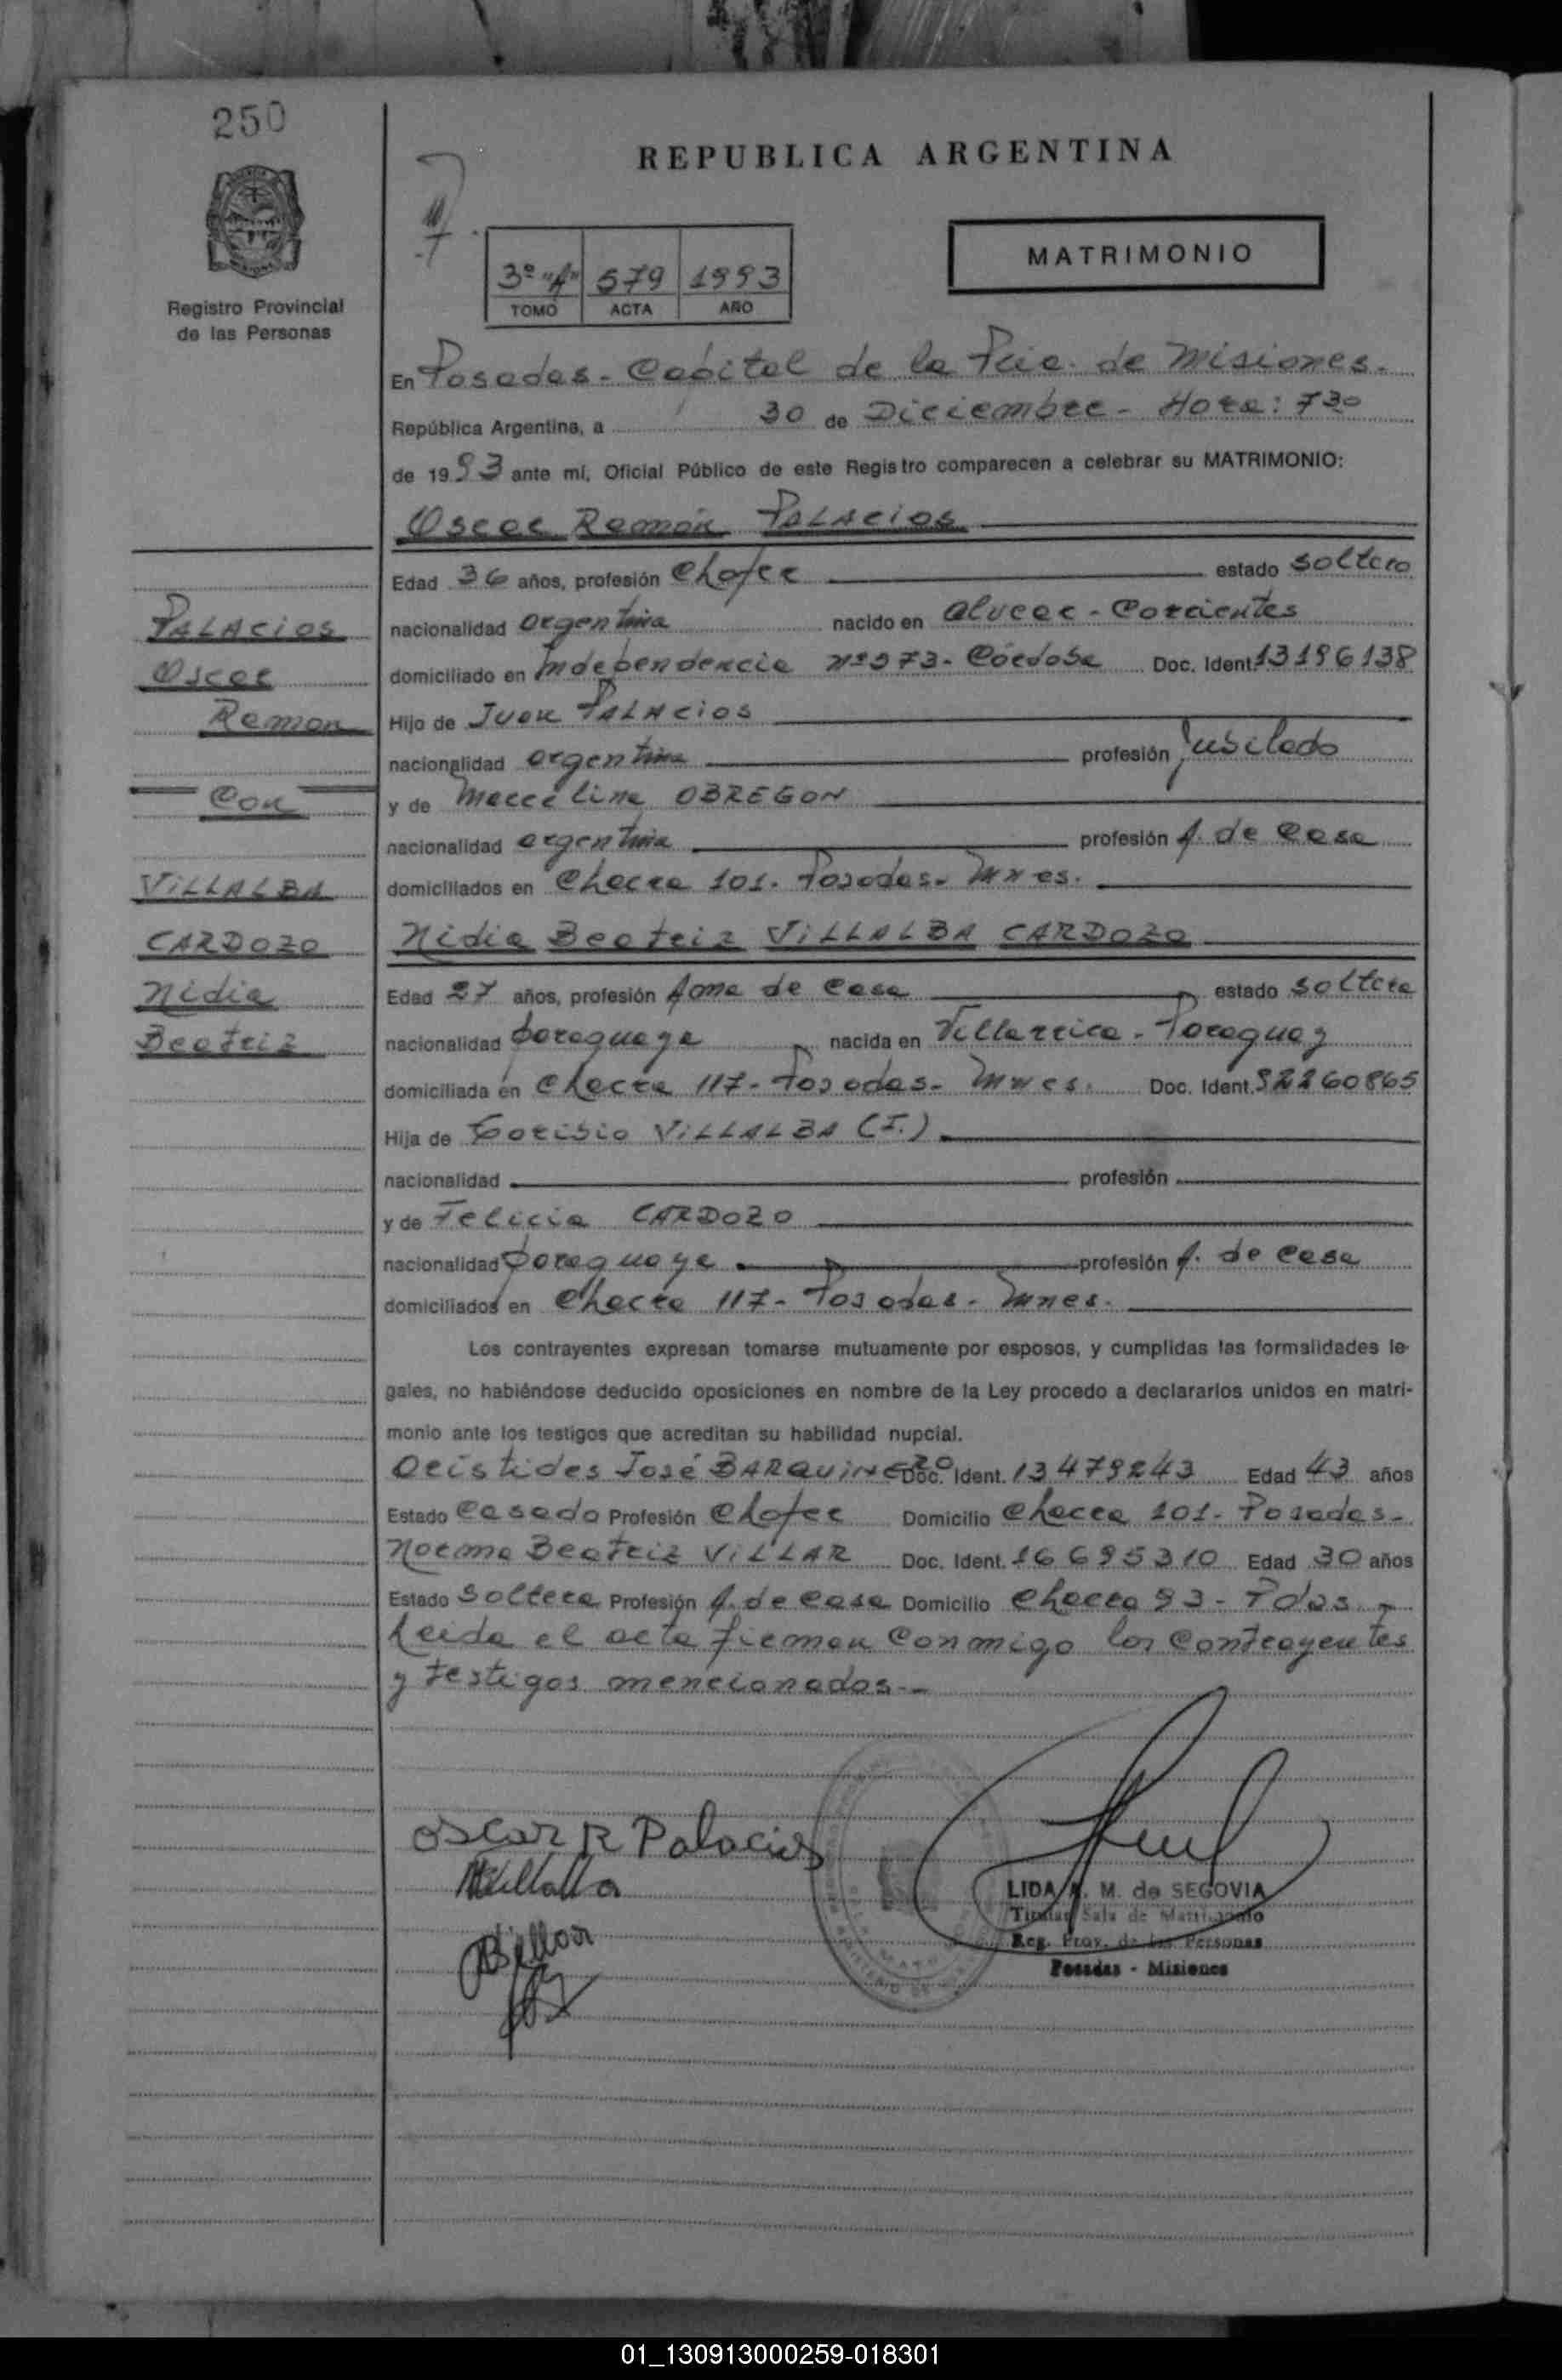 250
REPUBLICA ARGENTINA
MATRIMONIO
3º "A" 579 1993
TOMO ACTA AÑO
Registro Provincial
de las Personas
En Posadas - Capital de la Pcia. de Misiones.
República Argentina, a 30 de Diciembre - Hora: 7 30
de 1993 ante mí, Oficial Público de este Registro comparecen a celebrar su MATRIMONIO:
Oscar Ramón PALACIOS
Edad 36 años, profesión Chofer estado Soltero
PALACIOS
nacionalidad argentina nacido en Alvear - Corrientes
Oscar
domiciliado en Independencia Nº 973 - Córdoba Doc. Ident. 13196138
Ramon
Hijo de Juan PALACIOS
nacionalidad argentina profesión Jubilado
Con
y de Marcelina OBREGON
nacionalidad argentina profesión A. de Casa
VILLALBA
domiciliados en Chacra 101. Posadas - Mnes.
CARDOZO
Nidia Beatriz VILLALBA CARDOZO
Nidia
Edad 27 años, profesión Ama de Casa estado Soltera
Beatriz
nacionalidad paraguaya nacida en Villarrica - Paraguay
domiciliada en Chacra 117 - Posadas - Mnes. Doc. Ident. 92260865
Hija de Toribio VILLALBA (F.)
nacionalidad profesión
y de Felicia CARDOZO
nacionalidad paraguaya profesión A. de Casa
domiciliados en Chacra 117 - Posadas - Mnes.
Los contrayentes expresan tomarse mutuamente por esposos, y cumplidas las formalidades le-
gales, no habiéndose deducido oposiciones en nombre de la Ley procedo a declararlos unidos en matri-
monio ante los testigos que acreditan su habilidad nupcial.
Aristides José BARQUINERO Doc. Ident. 13479243 Edad 43 años
Estado Casado Profesión Chofer Domicilio Chacra 101 - Posadas -
Norma Beatriz VILLAR Doc. Ident. 16695310 Edad 30 años
Estado Soltera Profesión A. de Casa Domicilio Chacra 93 - Pdas -
Leida el acta firman conmigo los contrayentes
y testigos mencionados.-
Oscar R Palacios
NVillalba
BVillar
LIDA A. M. de SEGOVIA
Titular Sala de Matrimonio
Reg. Prov. de las Personas
Posadas - Misiones
01_130913000259-018301